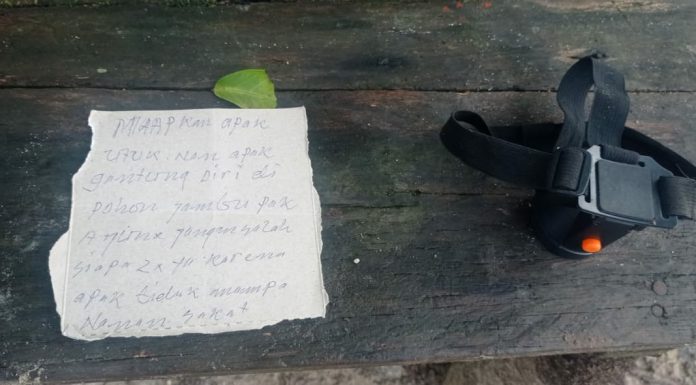 MAAPKan apak
UTUK. Nan apak
gantung Diri di
Pohon jambu pak
jangan salah
Siapa2x Karena
apak tiduk mampa
Nanan Sakat